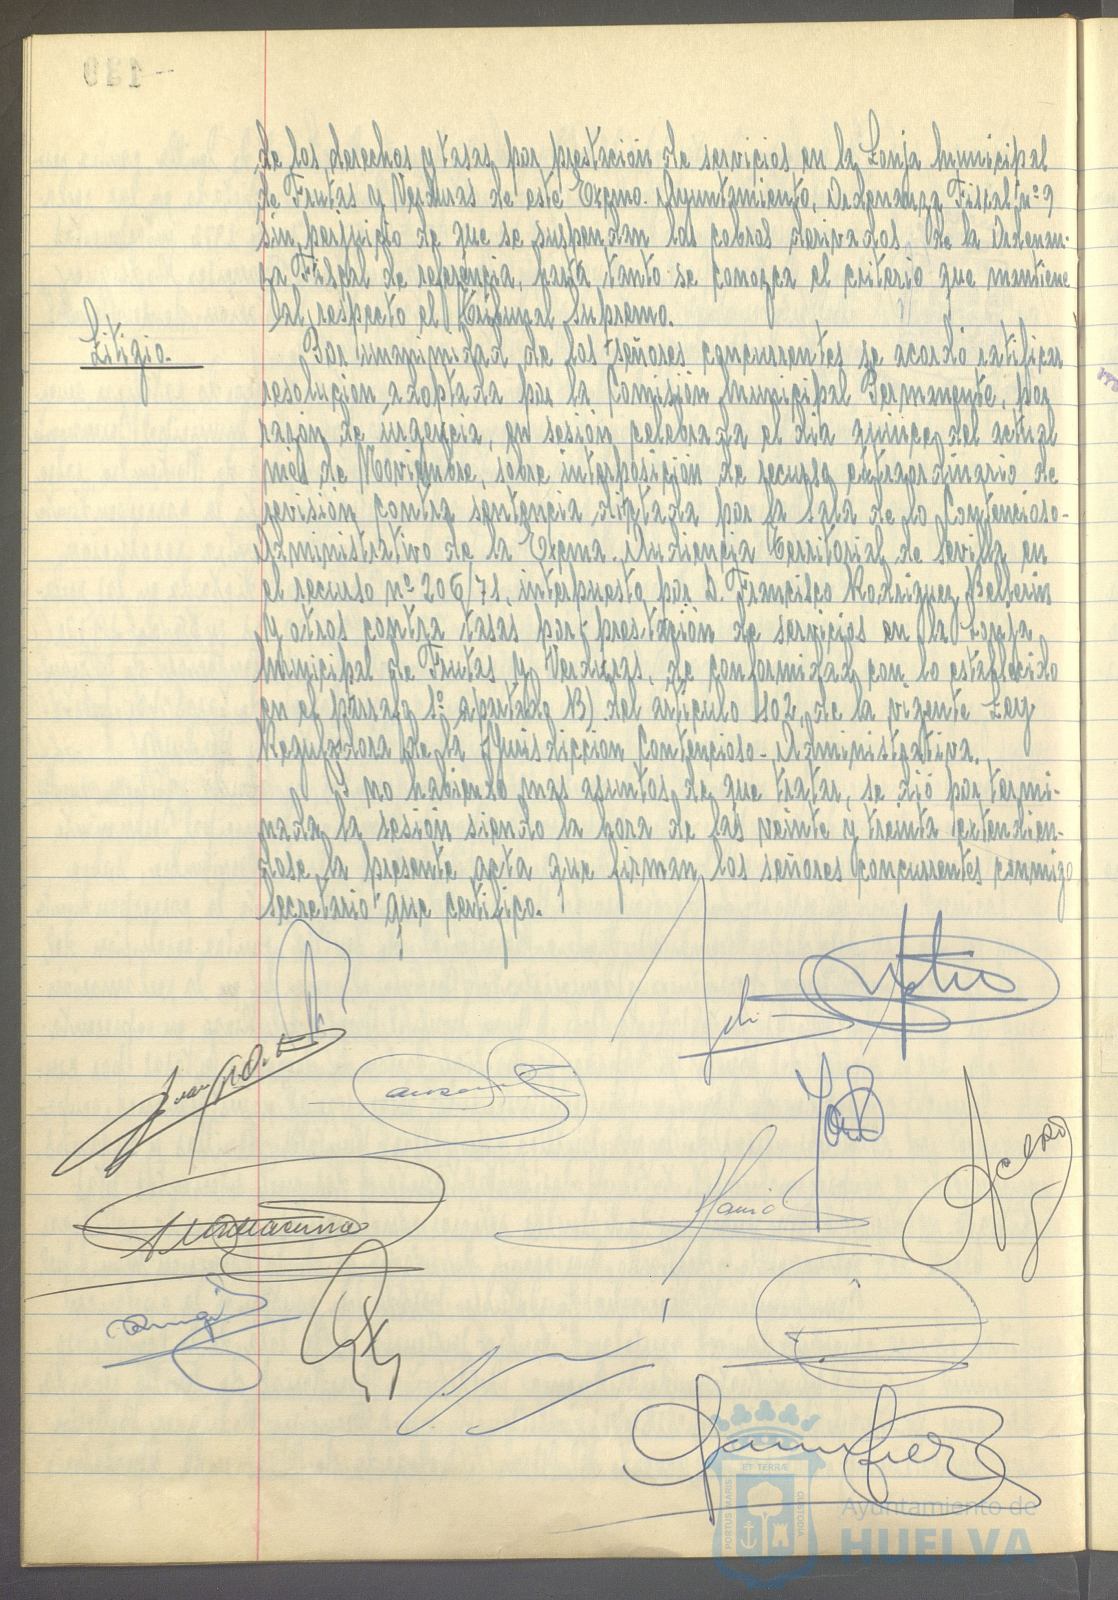 de los derechos y tasas por prestación de servicios en la Lonja Municipal
de Frutas y Verduras de este Excmo. Ayuntamiento, Ordenanza Fiscal nº 9
sin perjuicio de que se suspendan los cobros derivados de la Ordenan-
za Fiscal de referencia, hasta tanto se conozca el criterio que mantiene
al respecto el Tribunal Supremo.
Litigio.
Por unanimidad de los señores concurrentes se acordó ratificar
resolución adoptada por la Comisión Municipal Permanente, por
razón de urgencia, en sesión celebrada el día quince del actual
mes de Noviembre, sobre interposición de recurso extraordinario de
revisión contra sentencia dictada por la Sala de lo Contencioso-
Administrativo de la Excma. Audiencia Territorial de Sevilla en
el recurso nº 206/71, interpuesto por D. Francisco Rodriguez Bellerin
y otros contra tasas por prestación de servicios en la Lonja
Municipal de Frutas y Verduras, de conformidad con lo establecido
en el párrafo 1º apartado B) del artículo 102, de la vigente Ley
Reguladora de la Jurisdiccion Contencioso-Administrativa.
Y no habiendo mas asuntos de que tratar, se dió por termi-
nada la sesión siendo la hora de las veinte y treinta extendien-
dose la presente acta que firman los señores concurrentes conmigo
Secretario que certifico.
ET TERRÆ
PORTUS MARIS
CUSTODIA
Ayuntamiento de
HUELVA